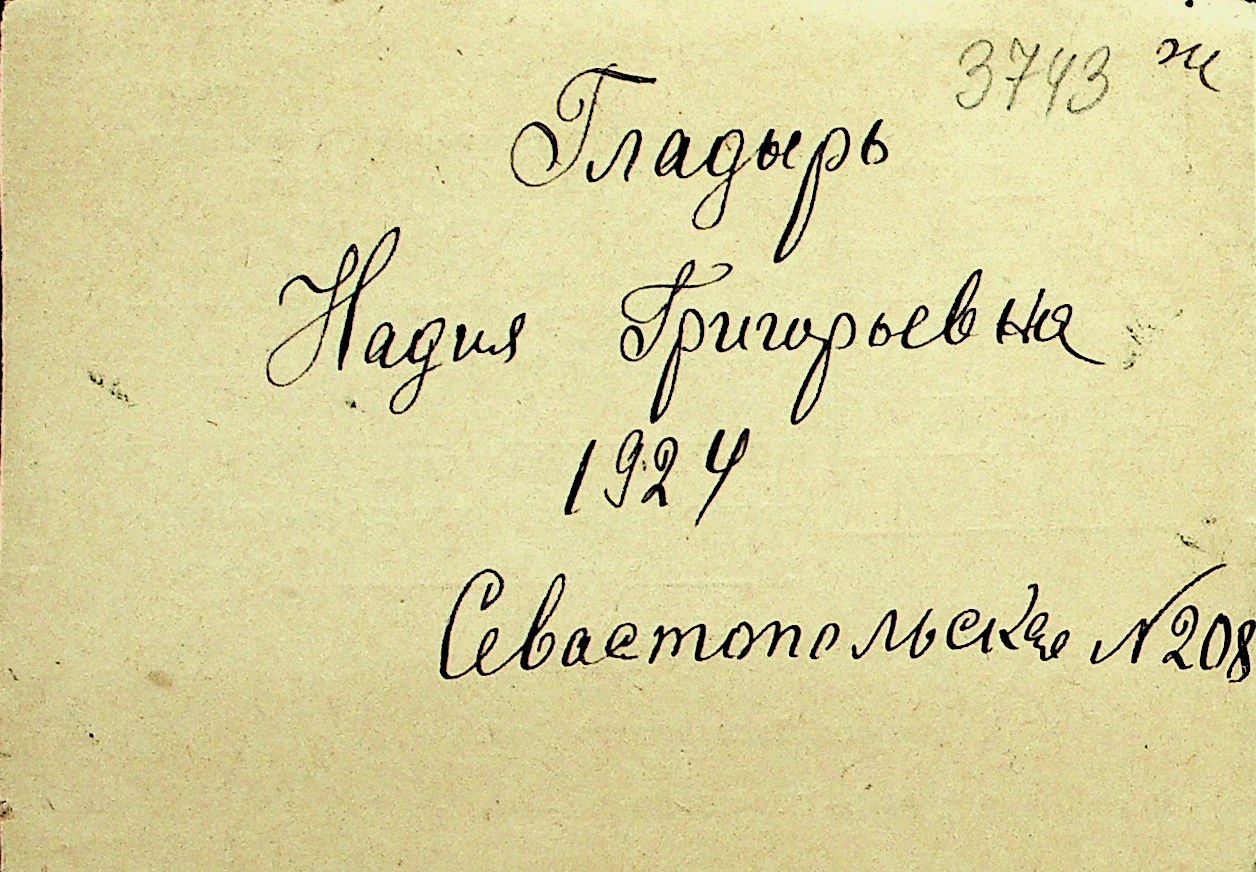 3743 ж
Гладырь
Надия Григорьевна
1924
Севастопольская №208